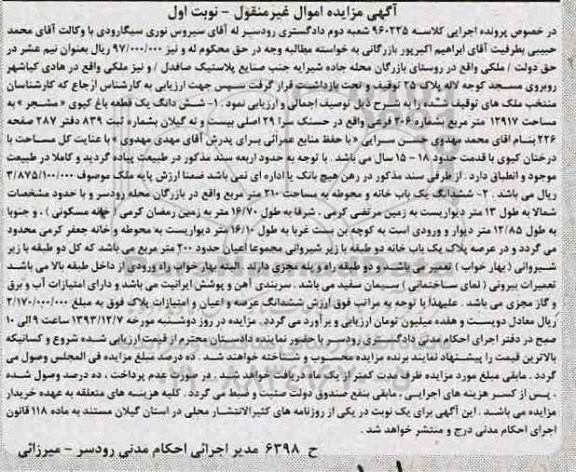 آگهی مزایده اموال غیرمنقول - نوبت اول
در خصوص پرونده اجرایی کلاسه ۹۶۰۲۲۵ شعبه دوم دادگستری رودسر له آقای سیروس نوری سیگارودی با وکالت آقای محمد
حبیبی بطرفیت آقای ابراهیم اکبرپور بازرگانی به خواسته مطالبه وجه در حق محکوم له و نیز ۹۷/۰۰۰/۰۰۰ ریال بعنوان نیم عشر در
حق دولت / ملکی واقع در روستای بازرگان محله جاده شیرایه جنب صنایع پلاستیک صافدل / و نیز ملکی واقع در هادی کیاشهر
روبروی مسجد کوچه لاله پلاک ۲۵ توقیف و تحت بازداشت قرار گرفت سپس جهت ارزیابی به کارشناس ارجاع که کارشناسان
منتخب ملک های توقیف شده را به شرح ذیل توصیف اجمالی و ارزیابی نمود . ۱- شش دانگ یک قطعه باغ کیوی « مشجر » به
مساحت ۱۲۹۱۷ متر مربع بشماره ۲۰۶ فرعی واقع در حسنک سرا ۲۹ اصلی بیست و نه گیلان بشماره ثبت ۸۳۹ دفتر ۲۸۷ صفحه
۲۲۶ بنام اقای محمد مهدوی حسن سرایی « با حفظ منابع عمرانی برای پدرش آقای مهدی مهدوی » با عنایت کل مساحت با
درختان کیوی با قدمت حدود ۱۸ - ۱۵ سال می باشد . با توجه به حدود اربعه سند مذکور در طبیعت پیاده گردید و کاملا در طبیعت
موجود و انطباق دارد . از طرفی سند مذکور در رهن هیچ بانک یا اداره ای نمی باشد ضمنا ارزش پایه ملک موصوف ۳/۸۷۵/۱۰۰/۰۰۰
ریال می باشد . ۲- ششدانگ یک باب خانه و محوطه به مساحت ۲۱۰ متر مربع واقع در بازرگان محله رودسر و با حدود مشخصات
شمالا به طول ۱۳ متر دیواریست به زمین مرتضی کرمی ، شرقا به طول ۱۶/۷۰ متر به زمین رمضان کرمی ( خانه مسکونی ) ، و جنوبا
به طول ۱۲/۸۵ متر دیوار و ورودی است به کوچه بن بست غربا به طول ۱۶/۱۰ متر دیواریست به محوطه و خانه جعفر کرمی محدود
می گردد و در عرصه پلاک یک باب خانه دو طبقه با زیر شیروانی مجموعا اعیان حدود ۲۰۰ متر مربع می باشد که کل دو طبقه با زیر
شیروانی ( بهار خواب ) تعمیر می باشند و دو طبقه راه و پله مجزی دارند . البته بهار خواب راه ورودی از داخل طبقه بالا می باشد
تعمیرات بیرونی ( نمای ساختمانی ) سیمان سفید می باشد . سربندی آهن و پوشش ایرانیت می باشد و دارای امتیازات آب و برق
و گاز مجزی می باشد . علیهذا با توجه به مراتب فوق ارزش ششدانگ عرصه و اعیان و امتیازات پلاک فوق به مبلغ ۲/۱۷۰/۰۰۰/۰۰۰
ریال معادل دویست و هفده میلیون تومان ارزیابی و برآورد می گردد . مزایده در روز دوشنبه مورخه ۱۳۹۳/۱۲/۷ ساعت ۹ الی ۱۰
صبح در دفتر اجرای احکام مدنی دادگستری رودسر با حضور نماینده دادستان محترم از قیمت ارزیابی شده شروع و کسانیکه
بالاترین قیمت را پیشنهاد نمایند برنده مزایده محسوب و شناخته خواهند شد . ده درصد مبلغ مزایده فی المجلس وصول می
گردد . مابقی مبلغ مورد مزایده ظرف مدت کمتر از یک ماه دریافت خواهد شد . در صورت عدم پرداخت ، ده درصد وصول شده
، پس از کسر هزینه های اجرایی ، مابقی بنفع صندوق دولت مثبت و ضبط می گردد . کلیه هزینه های متعلقه به عهده خریدار
مزایده می باشد . این آگهی برای یک نوبت در یکی از روزنامه های کثیرالانتشار محلی در استان گیلان مستند به ماده ۱۱۸ قانون
اجرای احکام مدنی درج و منتشر خواهد شد .
ح ۶۳۹۸ مدیر اجرائی احکام مدنی رودسر - میرزائی